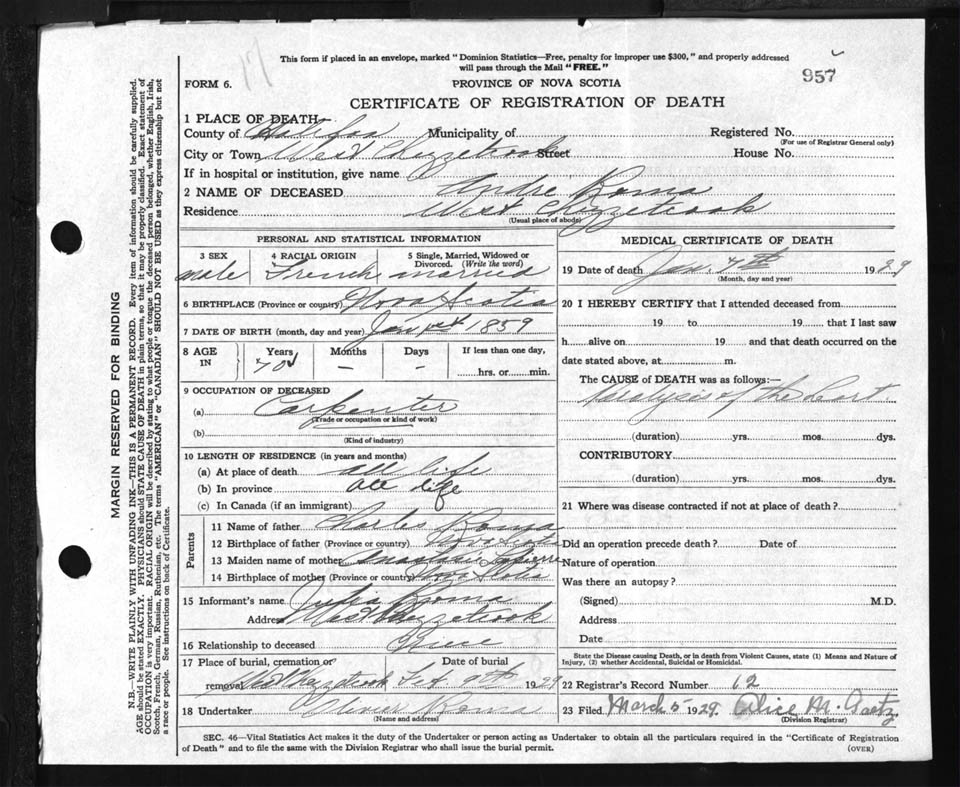 171
This form if placed in an envelope, marked "Dominion Statistics—Free, penalty for improper use $300," and properly addressed
will pass through the Mail "FREE."
957
FORM 6.
PROVINCE OF NOVA SCOTIA
CERTIFICATE OF REGISTRATION OF DEATH
1 PLACE OF DEATH—
County of Halifax Municipality of Registered No.
(For use of Registrar General only)
City or Town West Chezzetcook Street House No.
If in hospital or institution, give name
2 NAME OF DECEASED Andre Roma
Residence West Chezzetcook
(Usual place of abode)
PERSONAL AND STATISTICAL INFORMATION
3 SEX 4 RACIAL ORIGIN 5 Single, Married, Widowed or Divorced. (Write the word)
male French married
6 BIRTHPLACE (Province or country) Nova Scotia
7 DATE OF BIRTH (month, day and year) Jan 1st 1859
8 AGE IN Years Months Days If less than one day,
70 — — hrs. or min.
9 OCCUPATION OF DECEASED
(a) Carpenter
(Trade or occupation or kind of work)
(b)
(Kind of industry)
10 LENGTH OF RESIDENCE (in years and months)
(a) At place of death all life
(b) In province all life
(c) In Canada (if an immigrant)
Parents
11 Name of father Charles Roma
12 Birthplace of father (Province or country) Nova Scotia
13 Maiden name of mother Lapierre
14 Birthplace of mother (Province or country) Nova Scotia
15 Informant's name Roma
Address West Chezzetcook
16 Relationship to deceased Niece
17 Place of burial, cremation or Date of burial
removal West Chezzetcook 9th 1929
18 Undertaker Olivier Roma
(Name and address)
MEDICAL CERTIFICATE OF DEATH
19 Date of death Jan. 7th 1929
(Month, day and year)
20 I HEREBY CERTIFY that I attended deceased from
19 to 19 that I last saw
h alive on 19 and that death occurred on the
date stated above, at m.
The CAUSE of DEATH was as follows:—
Paralysis of the heart
(duration) yrs. mos. dys.
CONTRIBUTORY
(duration) yrs. mos. dys.
21 Where was disease contracted if not at place of death?
Did an operation precede death? Date of
Nature of operation
Was there an autopsy?
(Signed) M.D.
Address
Date
State the Disease causing Death, or in death from Violent Causes, state (1) Means and Nature of
Injury, (2) whether Accidental, Suicidal or Homicidal.
22 Registrar's Record Number 62
23 Filed March 5 1929. Alice M. Gaetz
(Division Registrar)
SEC. 46—Vital Statistics Act makes it the duty of the Undertaker or person acting as Undertaker to obtain all the particulars required in the "Certificate of Registration
of Death" and to file the same with the Division Registrar who shall issue the burial permit.
(OVER)
MARGIN RESERVED FOR BINDING
N.B.—WRITE PLAINLY WITH UNFADING INK—THIS IS A PERMANENT RECORD. Every item of information should be carefully supplied.
AGE should be stated EXACTLY. PHYSICIANS should STATE CAUSE OF DEATH in plain terms, so that it may be properly classified. Exact statement of
OCCUPATION is very important. RACIAL ORIGIN will be described by stating to what people or tongue the deceased person belonged, whether English, Irish,
Scotch, French, German, Russian, Ruthenian, etc. The terms "AMERICAN" or "CANADIAN" SHOULD NOT BE USED as they express citizenship but not
a race or people. See instructions on back of Certificate.